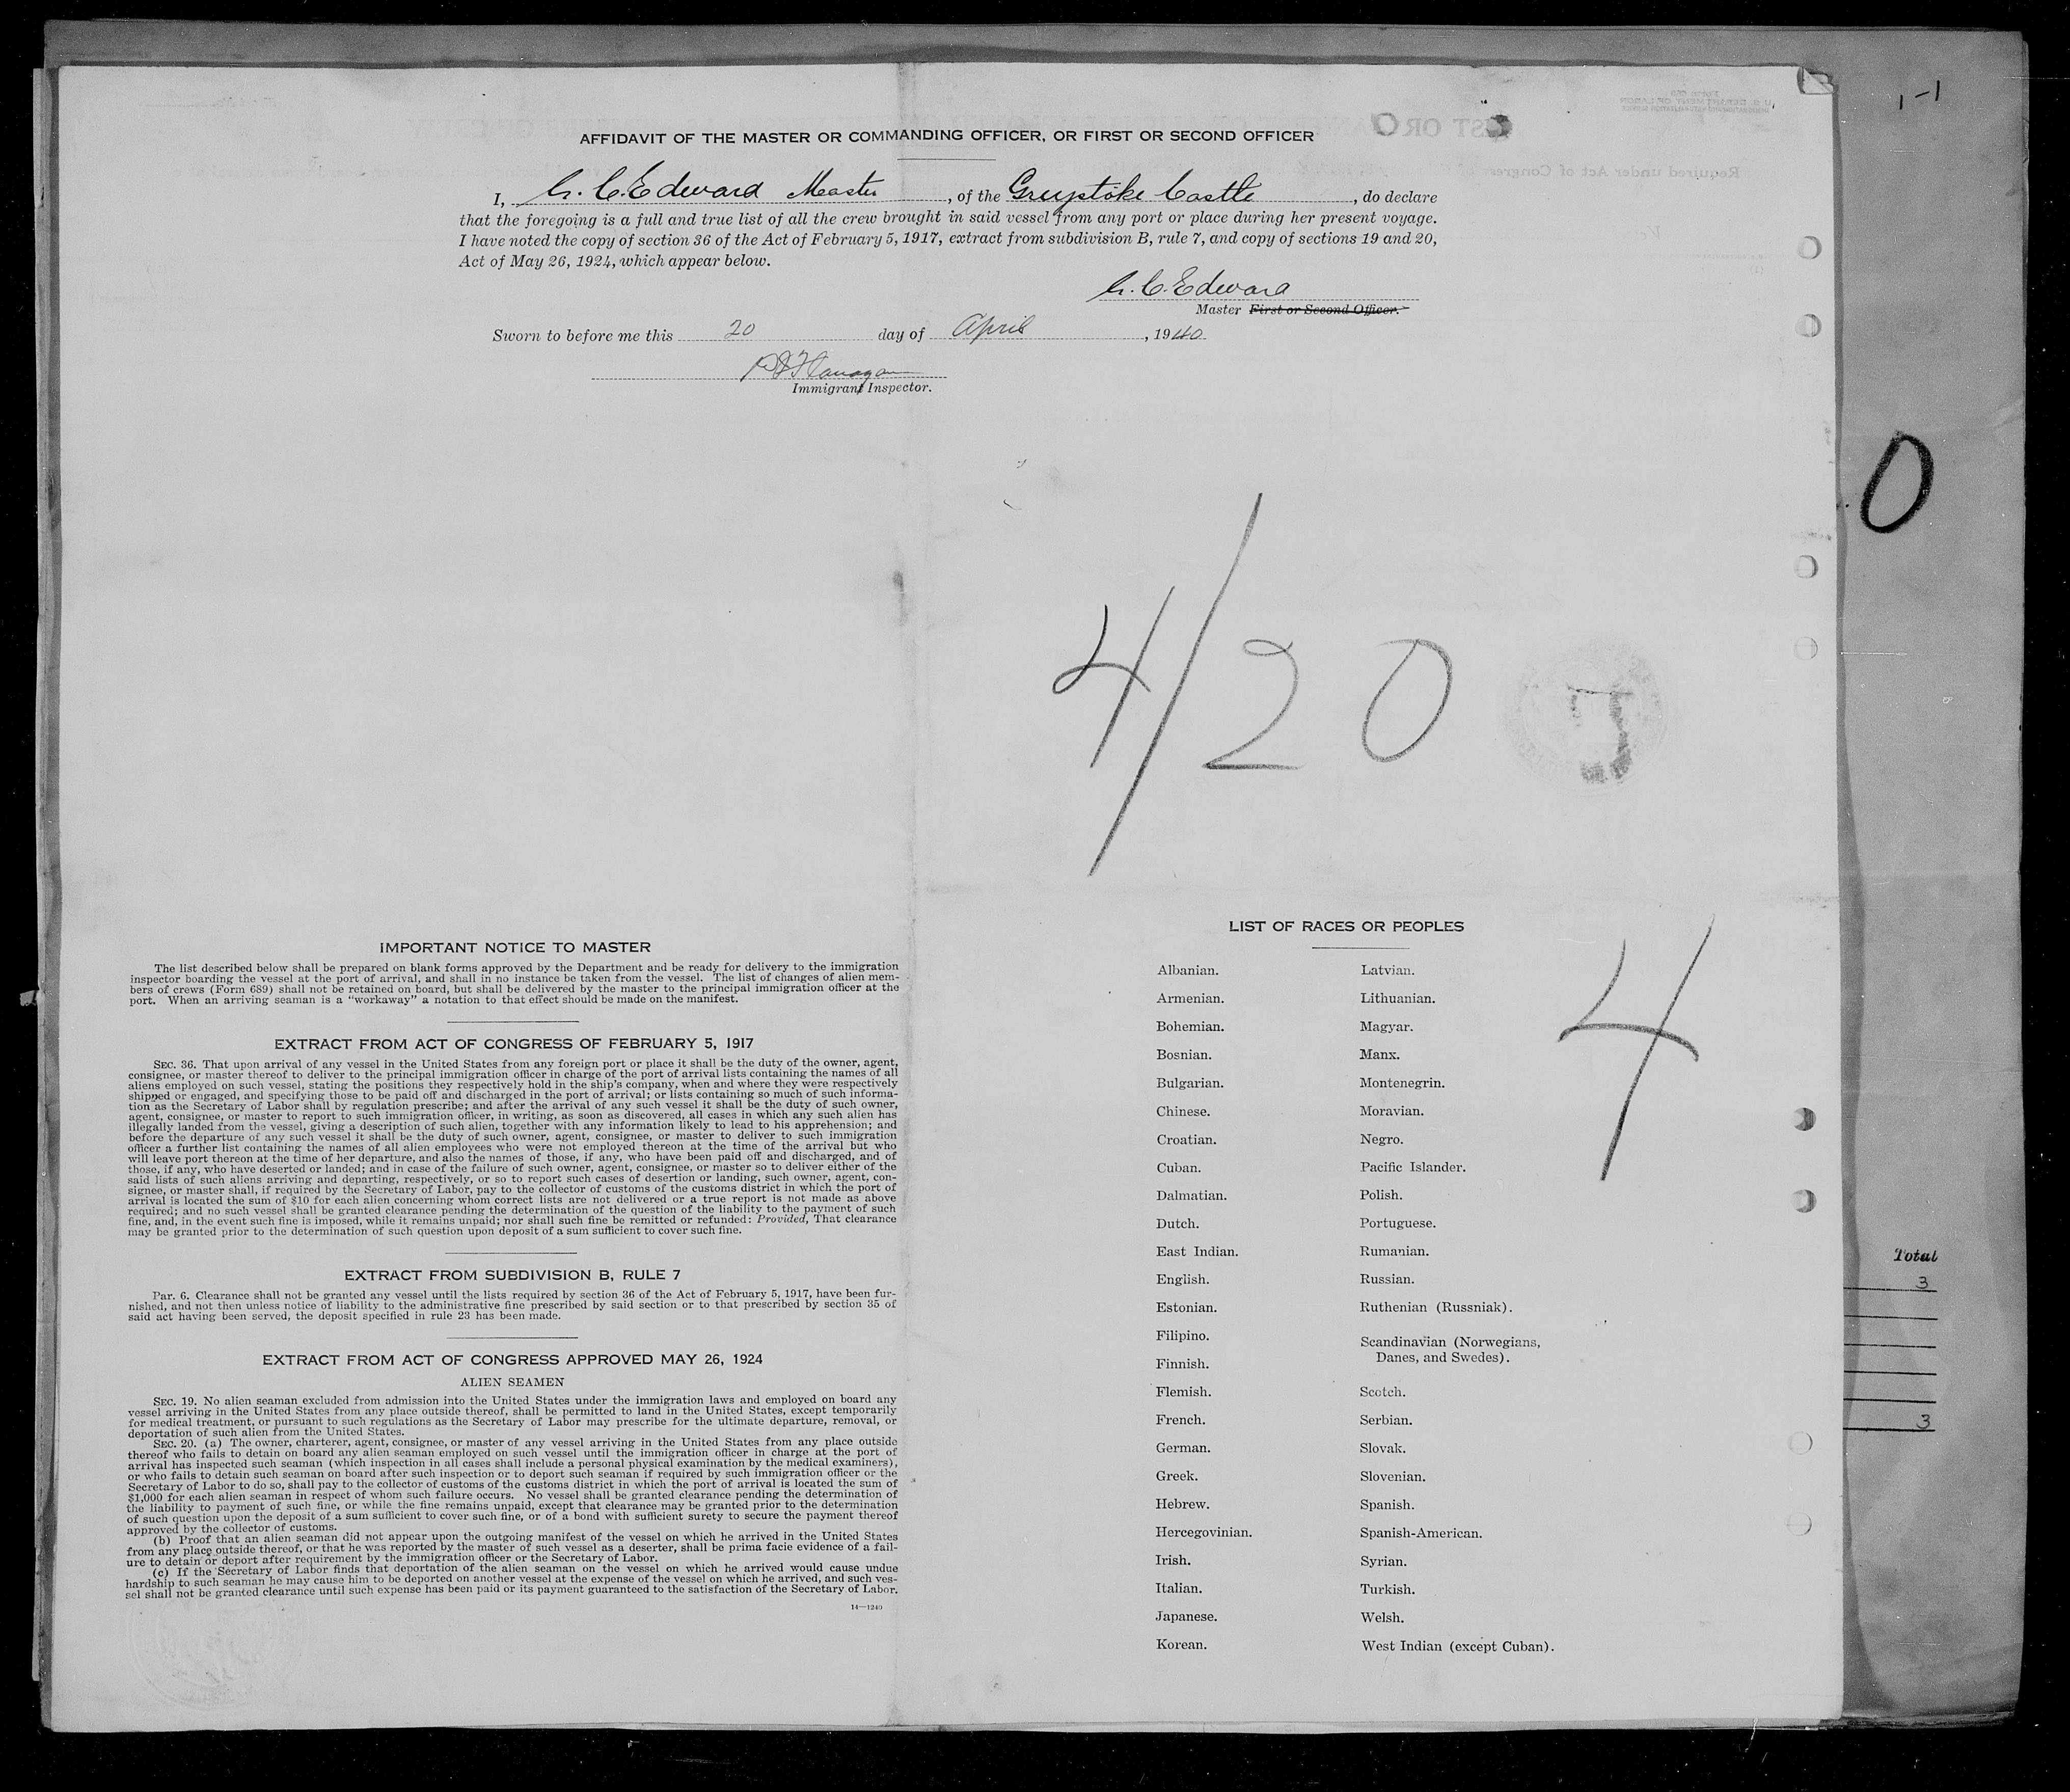 AFFIDAVIT OF THE MASTER OR COMMANDING OFFICER, OR FIRST OR SECOND OFFICER
I, G. C. Edward Master, of the Greystoke Castle, do declare
that the foregoing is a full and true list of all the crew brought in said vessel from any port or place during her present voyage.
I have noted the copy of section 36 of the Act of February 5, 1917, extract from subdivision B, rule 7, and copy of sections 19 and 20,
Act of May 26, 1924, which appear below.
G. C. Edward
Master First or Second Officer.
Sworn to before me this 20 day of April, 1940
Flanagan
Immigrant Inspector.
1-1
0
4/20
IMPORTANT NOTICE TO MASTER
The list described below shall be prepared on blank forms approved by the Department and be ready for delivery to the immigration
inspector boarding the vessel at the port of arrival, and shall in no instance be taken from the vessel. The list of changes of alien mem-
bers of crews (Form 689) shall not be retained on board, but shall be delivered by the master to the principal immigration officer at the
port. When an arriving seaman is a "workaway" a notation to that effect should be made on the manifest.
EXTRACT FROM ACT OF CONGRESS OF FEBRUARY 5, 1917
SEC. 36. That upon arrival of any vessel in the United States from any foreign port or place it shall be the duty of the owner, agent,
consignee, or master thereof to deliver to the principal immigration officer in charge of the port of arrival lists containing the names of all
aliens employed on such vessel, stating the positions they respectively hold in the ship's company, when and where they were respectively
shipped or engaged, and specifying those to be paid off and discharged in the port of arrival; or lists containing so much of such informa-
tion as the Secretary of Labor shall by regulation prescribe; and after the arrival of any such vessel it shall be the duty of such owner,
agent, consignee, or master to report to such immigration officer, in writing, as soon as discovered, all cases in which any such alien has
illegally landed from the vessel, giving a description of such alien, together with any information likely to lead to his apprehension; and
before the departure of any such vessel it shall be the duty of such owner, agent, consignee, or master to deliver to such immigration
officer a further list containing the names of all alien employees who were not employed thereon at the time of the arrival but who
will leave port thereon at the time of her departure, and also the names of those, if any, who have been paid off and discharged, and of
those, if any, who have deserted or landed; and in case of the failure of such owner, agent, consignee, or master so to deliver either of the
said lists of such aliens arriving and departing, respectively, or so to report such cases of desertion or landing, such owner, agent, con-
signee, or master shall, if required by the Secretary of Labor, pay to the collector of customs of the customs district in which the port of
arrival is located the sum of $10 for each alien concerning whom correct lists are not delivered or a true report is not made as above
required; and no such vessel shall be granted clearance pending the determination of the question of the liability to the payment of such
fine, and, in the event such fine is imposed, while it remains unpaid; nor shall such fine be remitted or refunded: Provided, That clearance
may be granted prior to the determination of such question upon deposit of a sum sufficient to cover such fine.
EXTRACT FROM SUBDIVISION B, RULE 7
Par. 6. Clearance shall not be granted any vessel until the lists required by section 36 of the Act of February 5, 1917, have been fur-
nished, and not then unless notice of liability to the administrative fine prescribed by said section or to that prescribed by section 35 of
said act having been served, the deposit specified in rule 23 has been made.
EXTRACT FROM ACT OF CONGRESS APPROVED MAY 26, 1924
ALIEN SEAMEN
SEC. 19. No alien seaman excluded from admission into the United States under the immigration laws and employed on board any
vessel arriving in the United States from any place outside thereof, shall be permitted to land in the United States, except temporarily
for medical treatment, or pursuant to such regulations as the Secretary of Labor may prescribe for the ultimate departure, removal, or
deportation of such alien from the United States.
SEC. 20. (a) The owner, charterer, agent, consignee, or master of any vessel arriving in the United States from any place outside
thereof who fails to detain on board any alien seaman employed on such vessel until the immigration officer in charge at the port of
arrival has inspected such seaman (which inspection in all cases shall include a personal physical examination by the medical examiners),
or who fails to detain such seaman on board after such inspection or to deport such seaman if required by such immigration officer or the
Secretary of Labor to do so, shall pay to the collector of customs of the customs district in which the port of arrival is located the sum of
$1,000 for each alien seaman in respect of whom such failure occurs. No vessel shall be granted clearance pending the determination of
the liability to payment of such fine, or while the fine remains unpaid, except that clearance may be granted prior to the determination
of such question upon the deposit of a sum sufficient to cover such fine, or of a bond with sufficient surety to secure the payment thereof
approved by the collector of customs.
(b) Proof that an alien seaman did not appear upon the outgoing manifest of the vessel on which he arrived in the United States
from any place outside thereof, or that he was reported by the master of such vessel as a deserter, shall be prima facie evidence of a fail-
ure to detain or deport after requirement by the immigration officer or the Secretary of Labor.
(c) If the Secretary of Labor finds that deportation of the alien seaman on the vessel on which he arrived would cause undue
hardship to such seaman he may cause him to be deported on another vessel at the expense of the vessel on which he arrived, and such ves-
sel shall not be granted clearance until such expense has been paid or its payment guaranteed to the satisfaction of the Secretary of Labor.
14—1240
LIST OF RACES OR PEOPLES
Albanian. Latvian.
Armenian. Lithuanian.
Bohemian. Magyar.
Bosnian. Manx.
Bulgarian. Montenegrin.
Chinese. Moravian.
Croatian. Negro.
Cuban. Pacific Islander.
Dalmatian. Polish.
Dutch. Portuguese.
East Indian. Rumanian.
English. Russian.
Estonian. Ruthenian (Russniak).
Filipino. Scandinavian (Norwegians,
Finnish. Danes, and Swedes).
Flemish. Scotch.
French. Serbian.
German. Slovak.
Greek. Slovenian.
Hebrew. Spanish.
Hercegovinian. Spanish-American.
Irish. Syrian.
Italian. Turkish.
Japanese. Welsh.
Korean. West Indian (except Cuban).
4
Total
3
3